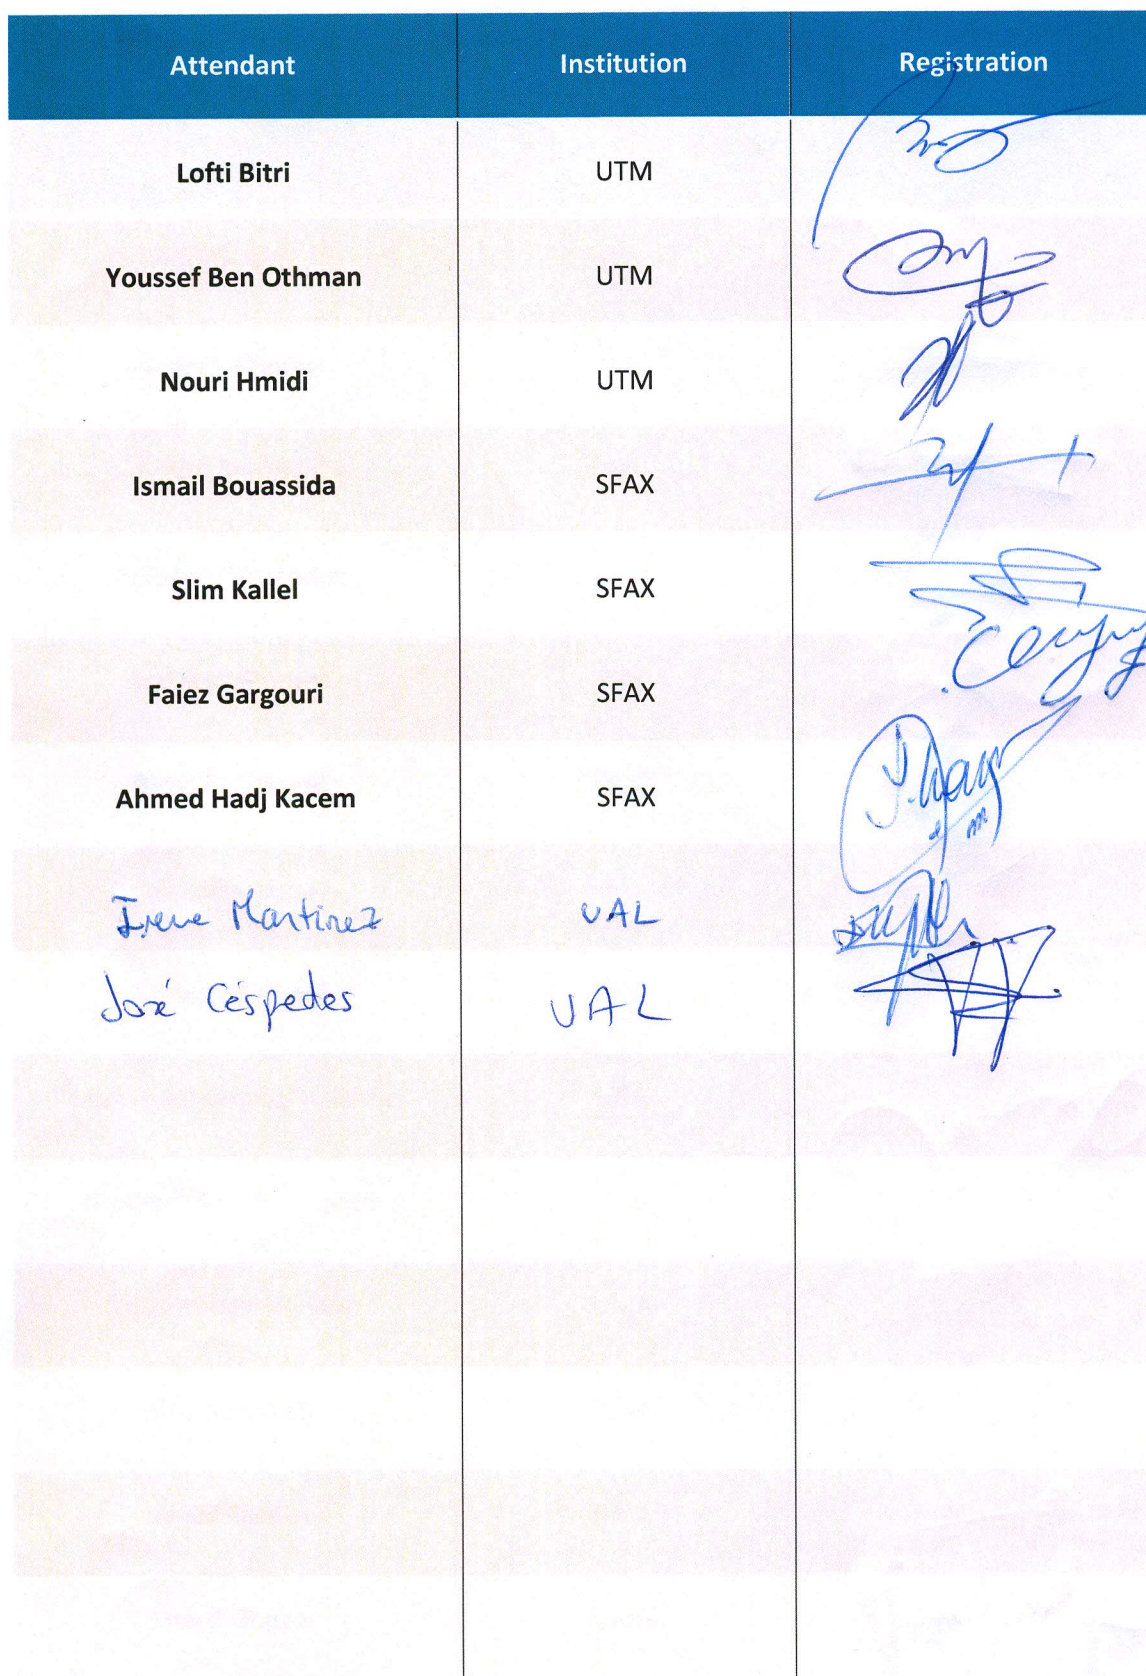 Attendant Institution Registration
Lofti Bitri UTM
Youssef Ben Othman UTM
Nouri Hmidi UTM
Ismail Bouassida SFAX
Slim Kallel SFAX
Faiez Gargouri SFAX
Ahmed Hadj Kacem SFAX
Irene Martinez UAL
José Céspedes UAL